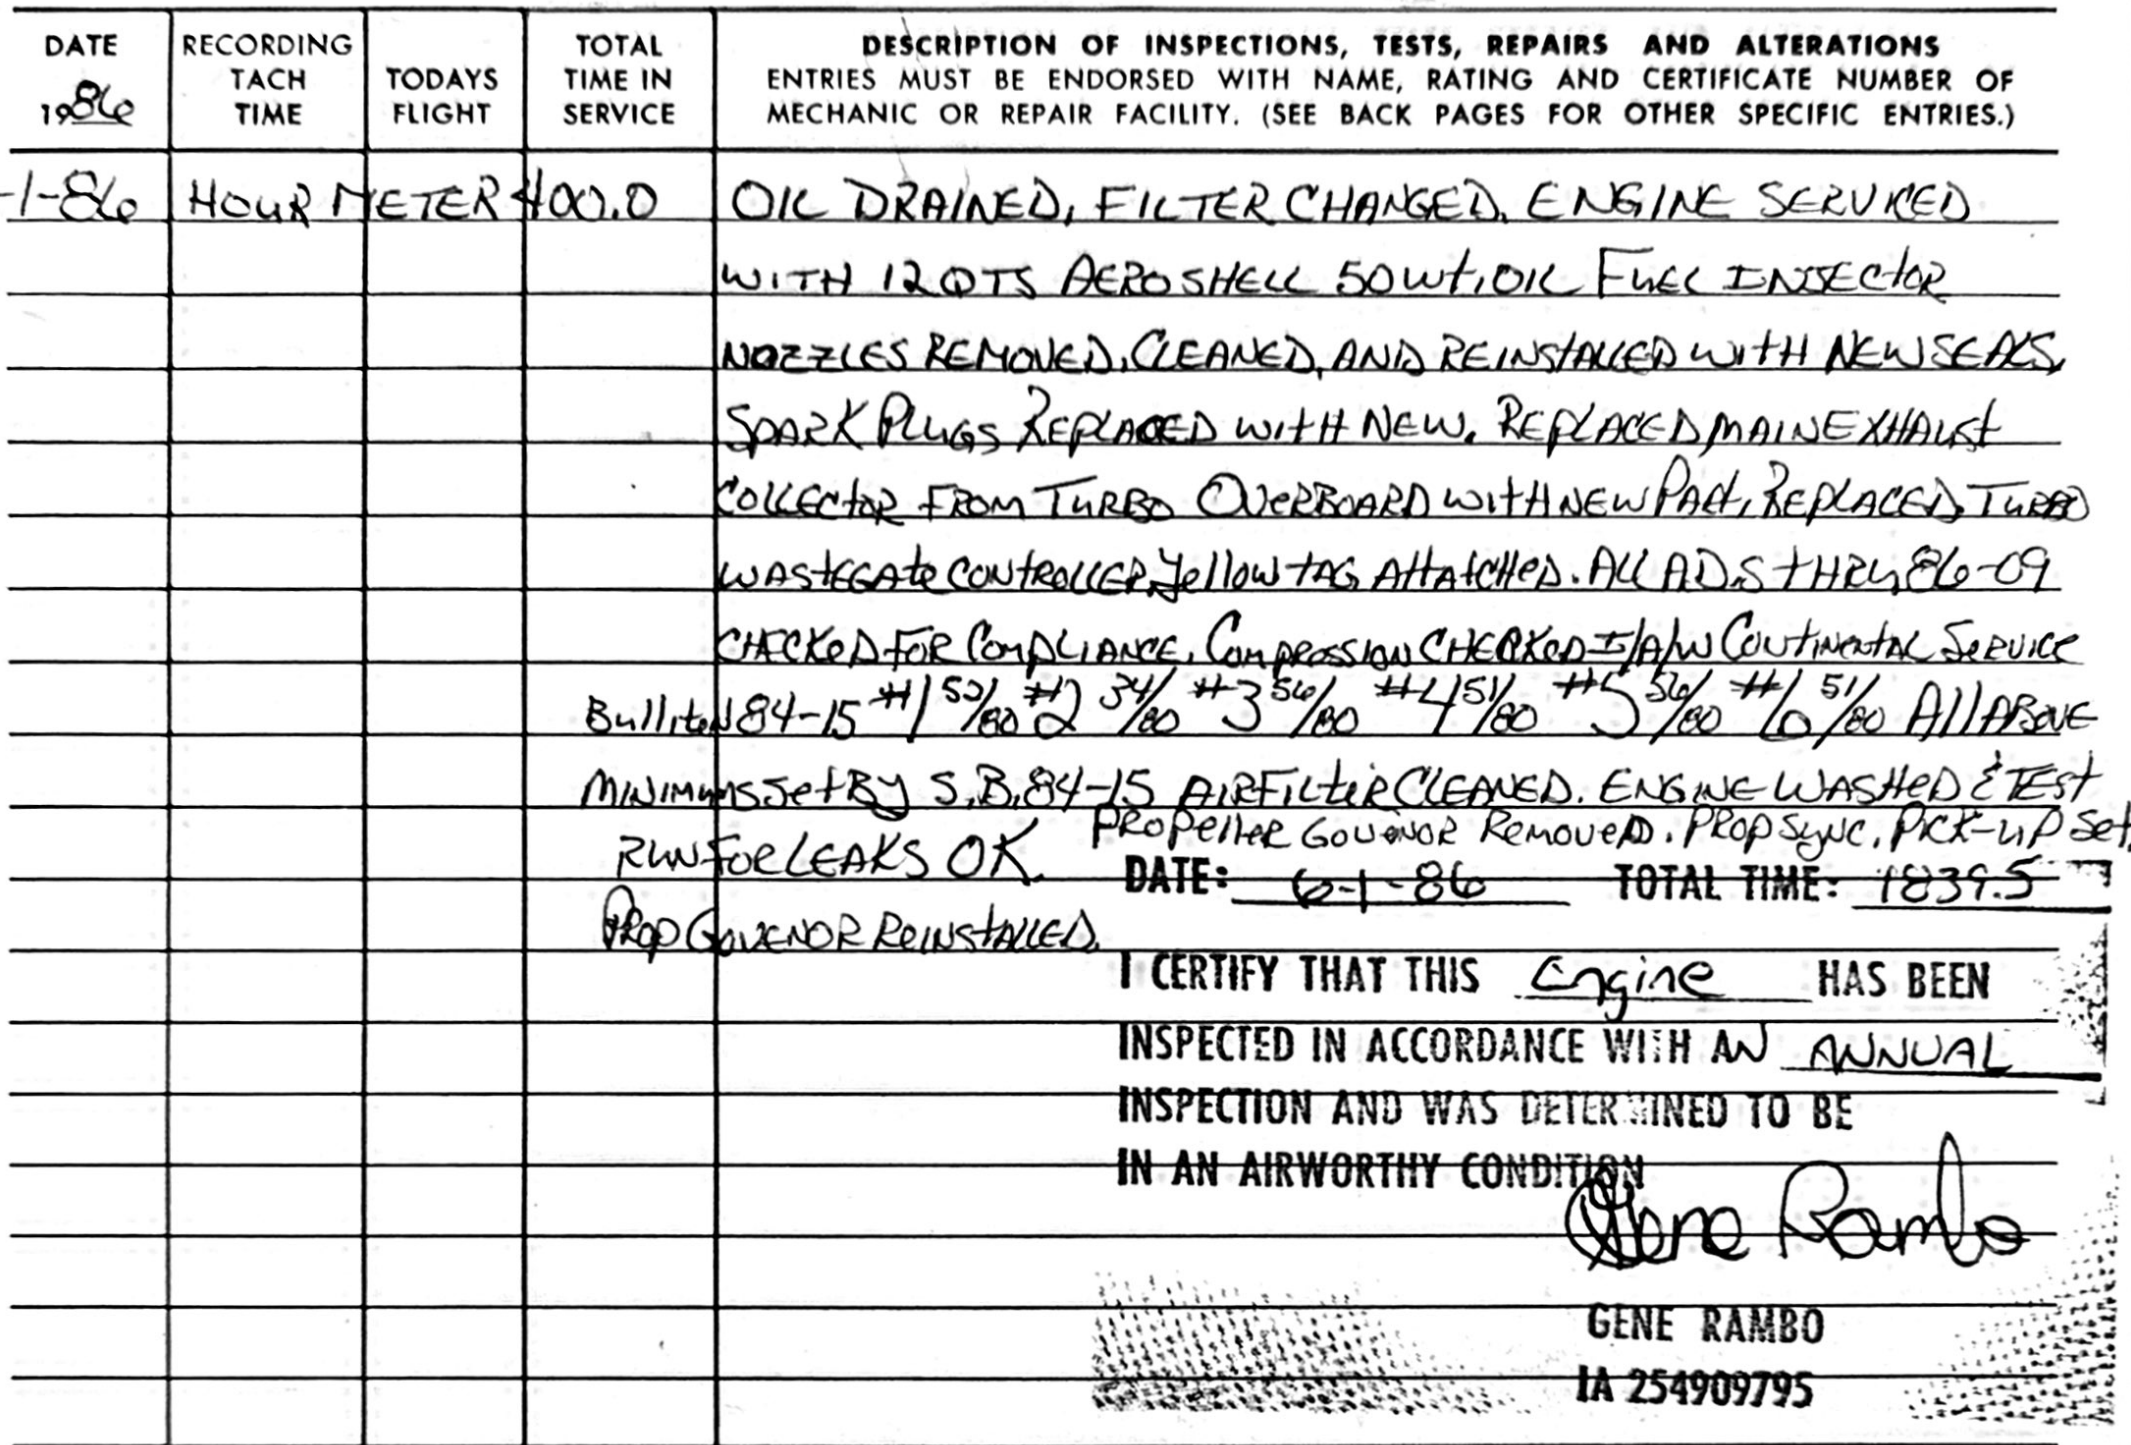 DATE
RECORDING
TACH
TIME
TODAYS
FLIGHT
TOTAL
TIME IN
SERVICE
DESCRIPTION OF INSPECTIONS, TESTS, REPAIRS AND ALTERATIONS
ENTRIES MUST BE ENDORSED WITH NAME, RATING AND CERTIFICATE NUMBER OF
MECHANIC OR REPAIR FACILITY. (SEE BACK PAGES FOR OTHER SPECIFIC ENTRIES.)
1986
-1-86 HOUR METER 400.0 OIL DRAINED, FILTER CHANGED. ENGINE SERVICED
WITH 12 QTS AEROSHELL 50 wt. OIL FUEL INJECTOR
NOZZLES REMOVED, CLEANED, AND REINSTALLED WITH NEW SEALS.
SPARK PLUGS REPLACED WITH NEW. REPLACED MAIN EXHAUST
COLLECTOR FROM TURBO OVERBOARD WITH NEW PART. REPLACED TURBO
WASTEGATE CONTROLLER, YELLOW TAG ATTATCHED. ALL AD,S THRU 86-09
CHECKED FOR COMPLIANCE. COMPRESSION CHECKED I/A/W CONTINENTAL SERVICE
BULLITEN 84-15 #1 52/80 #2 34/80 #3 56/80 #4 51/80 #5 56/80 #6 51/80 ALL ABOVE
MINIMUMS SET BY S.B. 84-15 AIR FILTER CLEANED. ENGINE WASHED & TEST
RUN FOR LEAKS OK. PROPELLER GOVENOR REMOVED. PROP SYNC. PICK-UP SET.
DATE: 6-1-86 TOTAL TIME: 1839.5
PROP GOVENOR REINSTALLED.
I CERTIFY THAT THIS Engine HAS BEEN
INSPECTED IN ACCORDANCE WITH AN ANNUAL
INSPECTION AND WAS DETERMINED TO BE
IN AN AIRWORTHY CONDITION
Gene Rambo
GENE RAMBO
IA 254909795